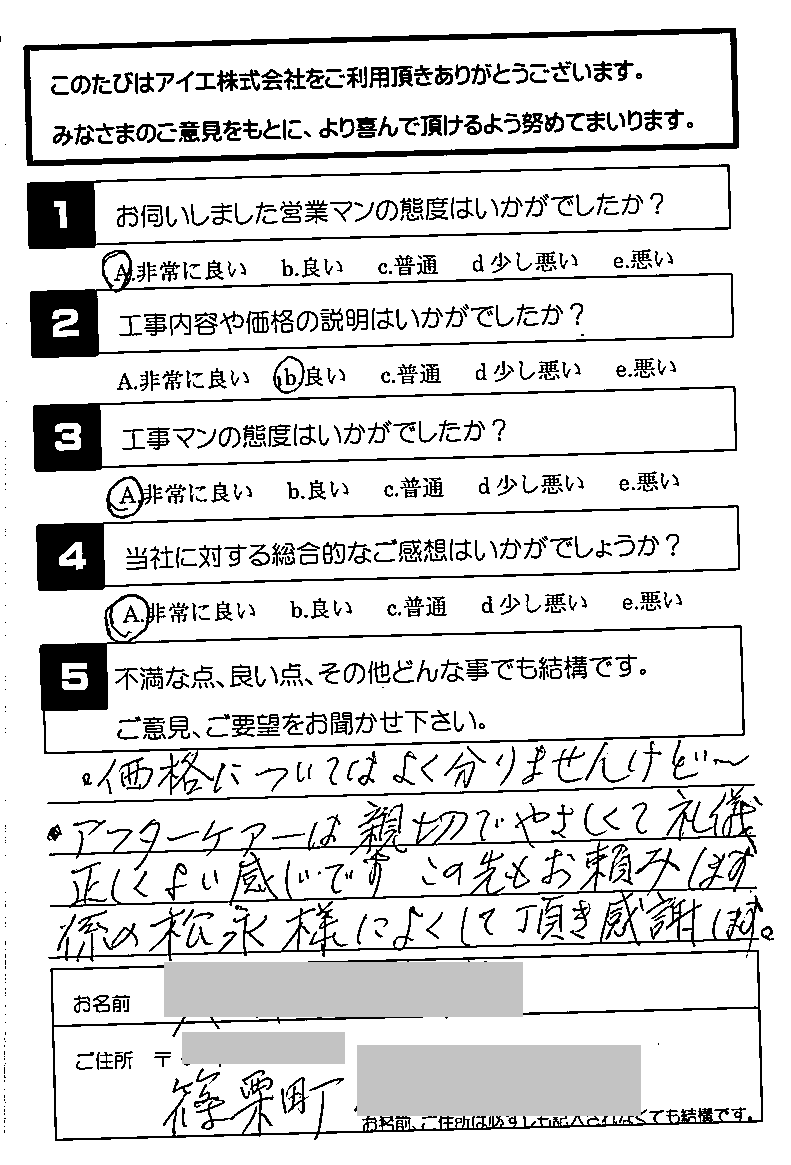 このたびはアイエ株式会社をご利用頂きありがとうございます。
みなさまのご意見をもとに、より喜んで頂けるよう努めてまいります。
1 お伺いしました営業マンの態度はいかがでしたか？
A.非常に良い b.良い c.普通 d少し悪い e.悪い
2 工事内容や価格の説明はいかがでしたか？
A.非常に良い b良い c.普通 d少し悪い e.悪い
3 工事マンの態度はいかがでしたか？
A.非常に良い b.良い c.普通 d少し悪い e.悪い
4 当社に対する総合的なご感想はいかがでしょうか？
A.非常に良い b.良い c.普通 d少し悪い e.悪い
5 不満な点、良い点、その他どんな事でも結構です。
ご意見、ご要望をお聞かせ下さい。
・価格についてはよく分りませんけど〜
・アフターケアーは親切でやさしくて礼儀
正しくよい感じです この先もお頼みします
係の松永様によくして頂き感謝します。
お名前
ご住所 〒
篠栗町
お名前、ご住所は必ずしも記入されなくても結構です。